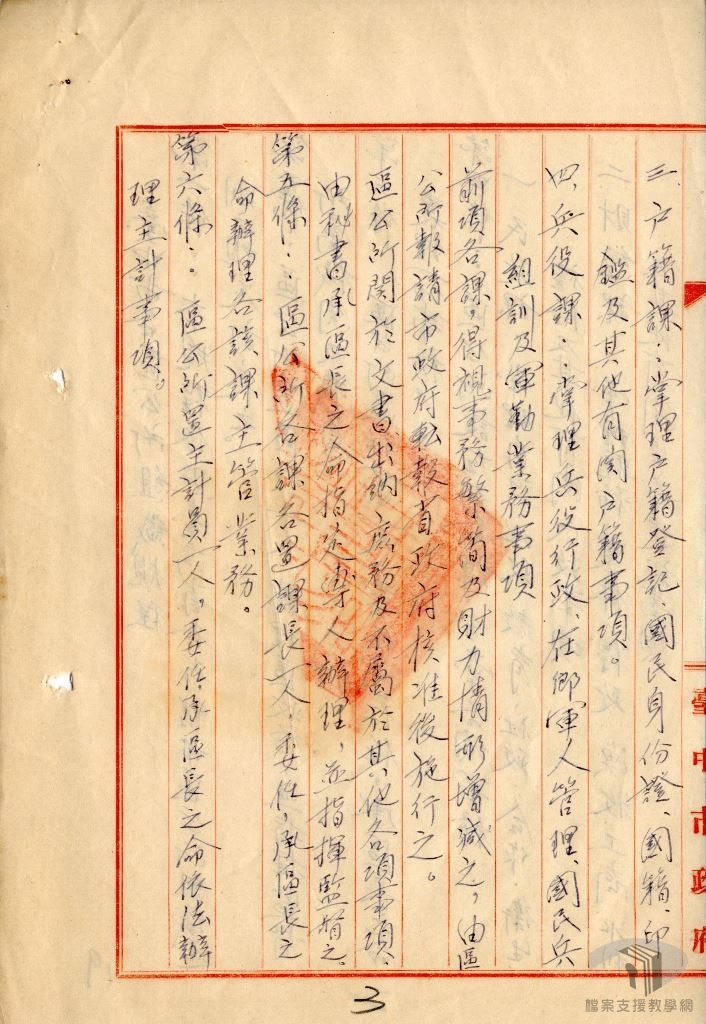 三、户籍課：掌理户籍登記、國民身份證、國籍、印
鑑及其他有関户籍事項。
四、兵役課：掌理兵役行政、在鄉軍人管理、國民兵
組訓及軍勤業務事項
前項各課，得視事務繁簡及財力情形增減之，由區
公所報請市政府転報省政府核准後施行之。
區公所関於文書出納庶務及不屬於其他各項事項、
由秘書承區長之命指定專人辦理，並指揮監督之。
第五條：區公所各課各置課長一人，委任，承區長之
命辦理各該課主管業務。
第六條：區公所置主計員一人，委任承區長之命依法辦
理主計事項。
臺中市政府
3
檔案支援教學網